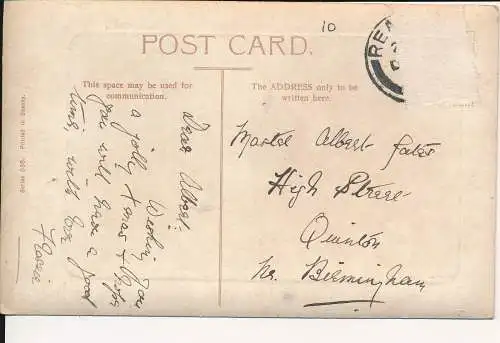 10
REA
POST CARD.
This space may be used for
communication.
The ADDRESS only to be
written here.
Series 536. Printed in Saxony.
Dear Albert.
Wishing you
a jolly Xmas &
you will have a good
time, with love
Florrie
Master Albert
High Street
Quinton
Nr. Birmingham